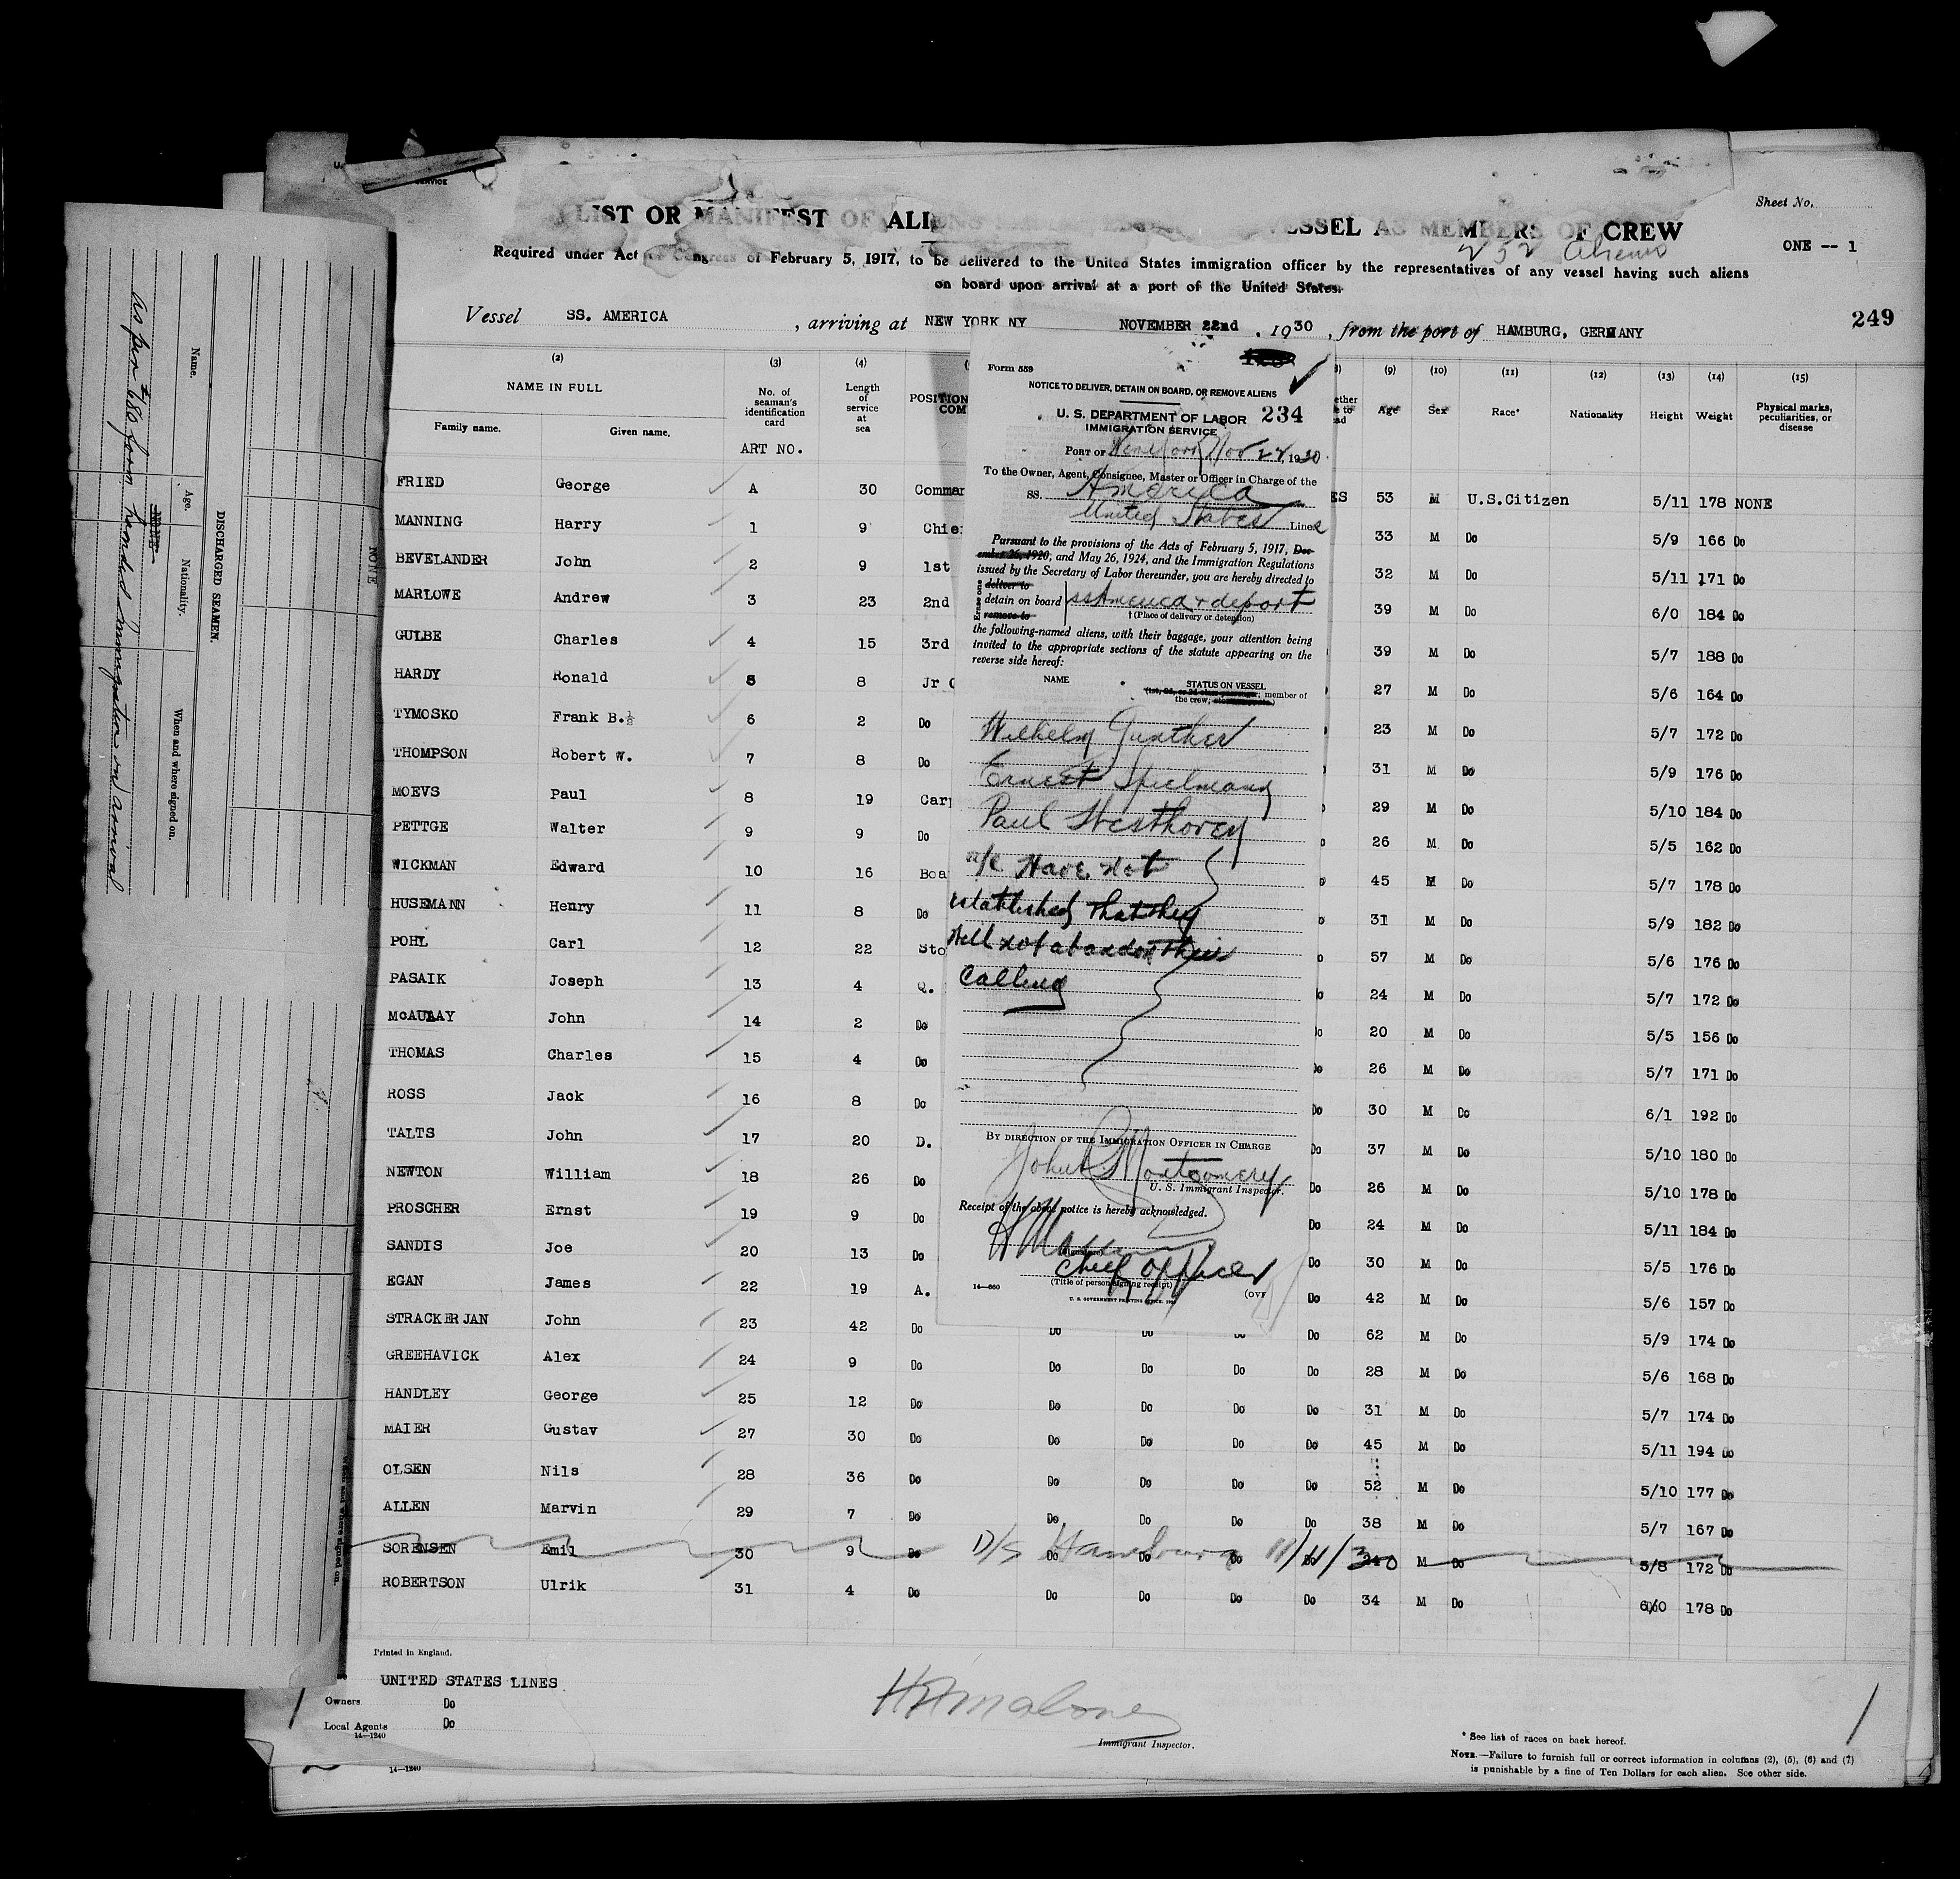 SERVICE
Sheet No.
LIST OR MANIFEST OF ALIENS VESSEL AS MEMBERS OF CREW
ONE -- 1
252 Aliens
Required under Act of Congress of February 5, 1917, to be delivered to the United States immigration officer by the representatives of any vessel having such aliens
on board upon arrival at a port of the United States.
249
Vessel SS. AMERICA, arriving at NEW YORK NY NOVEMBER 22nd, 1930, from the port of HAMBURG, GERMANY
(2) (3) (4) (9) (10) (11) (12) (13) (14) (15)
NAME IN FULL
Family name. Given name.
No. of seaman's identification card
ART NO.
Length of service at sea
POSITION
COM
Age Sex Race* Nationality Height Weight Physical marks, peculiarities, or disease
FRIED George A 30 Comman ES 53 M U.S.Citizen 5/11 178 NONE
MANNING Harry 1 9 Chie 33 M Do 5/9 166 Do
BEVELANDER John 2 9 1st 32 M Do 5/11 171 Do
MARLOWE Andrew 3 23 2nd 39 M Do 6/0 184 Do
GULBE Charles 4 15 3rd 39 M Do 5/7 188 Do
HARDY Ronald 5 8 Jr 27 M Do 5/6 164 Do
TYMOSKO Frank B. 6 2 Do 23 M Do 5/7 172 Do
THOMPSON Robert W. 7 8 Do 31 M Do 5/9 176 Do
MOEVS Paul 8 19 Car 29 M Do 5/10 184 Do
PETTGE Walter 9 9 Do 26 M Do 5/5 162 Do
WICKMAN Edward 10 16 Boa 45 M Do 5/7 178 Do
HUSEMANN Henry 11 8 Do 31 M Do 5/9 182 Do
POHL Carl 12 22 Sto 57 M Do 5/6 176 Do
PASAIK Joseph 13 4 Q. 24 M Do 5/7 172 Do
McAULAY John 14 2 Do Do 20 M Do 5/5 156 Do
THOMAS Charles 15 4 Do Do 26 M Do 5/7 171 Do
ROSS Jack 16 8 Do Do 30 M Do 6/1 192 Do
TALTS John 17 20 D. Do 37 M Do 5/10 180 Do
NEWTON William 18 26 Do Do 26 M Do 5/10 178 Do
PROSCHER Ernst 19 9 Do Do 24 M Do 5/11 184 Do
SANDIS Joe 20 13 Do Do 30 M Do 5/5 176 Do
EGAN James 22 19 A. Do 42 M Do 5/6 157 Do
STRACKERJAN John 23 42 Do Do Do Do Do 62 M Do 5/9 174 Do
GREEHAVICK Alex 24 9 Do Do Do Do Do 28 M Do 5/6 168 Do
HANDLEY George 25 12 Do Do Do Do Do 31 M Do 5/7 174 Do
MAIER Gustav 27 30 Do Do Do Do Do 45 M Do 5/11 194 Do
OLSEN Nils 28 36 Do Do Do Do Do 52 M Do 5/10 177 Do
ALLEN Marvin 29 7 Do Do Do Do Do 38 M Do 5/7 167 Do
SORENSEN Emil 30 9 Do Do Do Do Do M Do 5/8 172 Do
D/S Hamburg 11/11/30
ROBERTSON Ulrik 31 4 Do Do Do Do Do 34 M Do 6/0 178 Do
Printed in England.
UNITED STATES LINES
Owners Do
Local Agents Do
14—1240
14—1240
Immigrant Inspector.
* See list of races on back hereof.
NOTE.—Failure to furnish full or correct information in columns (2), (5), (6) and (7)
is punishable by a fine of Ten Dollars for each alien. See other side.
Form 559
NOTICE TO DELIVER, DETAIN ON BOARD, OR REMOVE ALIENS
U. S. DEPARTMENT OF LABOR 234
IMMIGRATION SERVICE
PORT OF New York Nov 22, 1930
To the Owner, Agent, Consignee, Master or Officer in Charge of the
SS. America
United States Lines
Pursuant to the provisions of the Acts of February 5, 1917, Dec-
ember 26, 1920, and May 26, 1924, and the Immigration Regulations
issued by the Secretary of Labor thereunder, you are hereby directed to
Erase one
deliver to
detain on board SS America & deport
remove to
† (Place of delivery or detention)
the following-named aliens, with their baggage, your attention being
invited to the appropriate sections of the statute appearing on the
reverse side hereof:
NAME STATUS ON VESSEL
member of
the crew;
Wilhelm Gunther
Ernest Spielmann
Paul Westhoven
Have not
established that they
will not abandon their
calling
BY DIRECTION OF THE IMMIGRATION OFFICER IN CHARGE
John Montgomery
U. S. Immigrant Inspector.
Receipt of the above notice is hereby acknowledged.
Chief Officer
(Title of person signing receipt)
14—660
U. S. GOVERNMENT PRINTING OFFICE
(OVE
DISCHARGED SEAMEN.
Name. Age. Nationality. When and where signed on.
NONE
NONE
As per 680 form handed Immigration on arrival